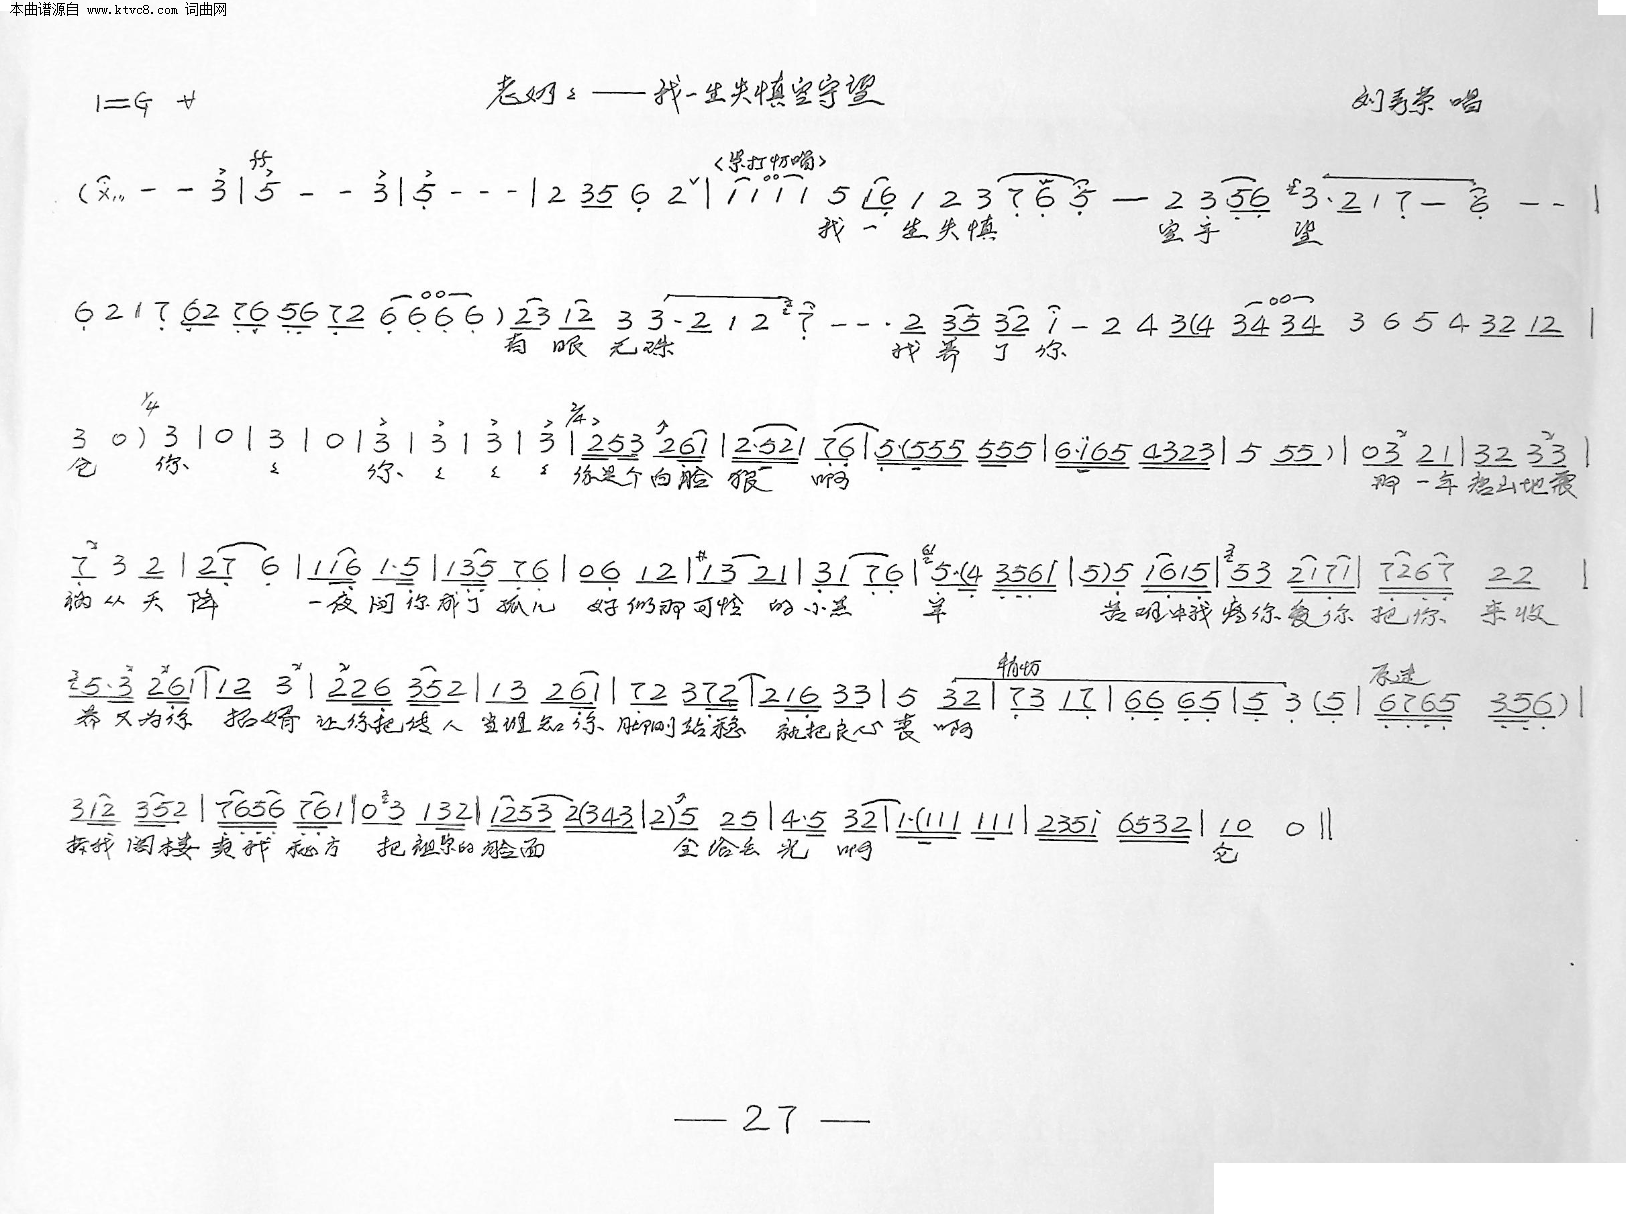 本曲谱源自 www.ktvc8.com 词曲网
1=G 老奶々——我一生失慎空守望 刘秀荣 唱
ff 〈紧打切唱〉
3 | 5 - - 3 | 5 - - - | 2 35 6 2 | i i i i 5 i6 1 2 3 7 6 5 — 2 3 56 3·2 1 7 — 6 - - |
我一生失慎 空守 望
6 2 1 7 62 76 56 72 6 6 6 6 ) 23 12 3 3·2 1 2 7 - - - · 2 35 32 i - 2 4 3(4 34 34 3 6 5 4 32 12 |
有眼无珠 我养了你
1/4 2/4
3 0 ) 3 | 0 | 3 | 0 | 3 | 3 | 3 | 3 | 253 261 | 2·521 76 | 5·(555 555 | 6·i65 4323 | 5 55 ) | 03 21 | 32 33 |
仓 你、 々 你、 々 々 々 你是个白脸狼 啊 那一年唐山地震
7 3 2 | 27 6 | 116 1·5 | 135 76 | 06 12 | 13 21 | 31 76 | 5·(4 3561 | 5)5 1615 | 53 2171 | 7267 22 |
祸从天降 一夜间你成了孤儿 好似那可怜的小羔 羊 苦难中我疼你爱你把你来收
5·3 261 | 12 3 | 226 352 | 13 261 | 72 372 | 216 33 | 5 32 | 73 17 | 66 65 | 5 3 (5 | 6765 356) |
养又为你 招婿让你把传人当谁知你脚刚站稳 就把良心丧啊
312 352 | 7656 761 | 03 132 | 1253 2(343 | 2)5 25 | 4·5 32 | 1·(111 111 | 235i 6532 | 10 0 ||
拆我阁楼卖我秘方 把祖宗的脸面 全给丢光 啊 仓
— 27 —